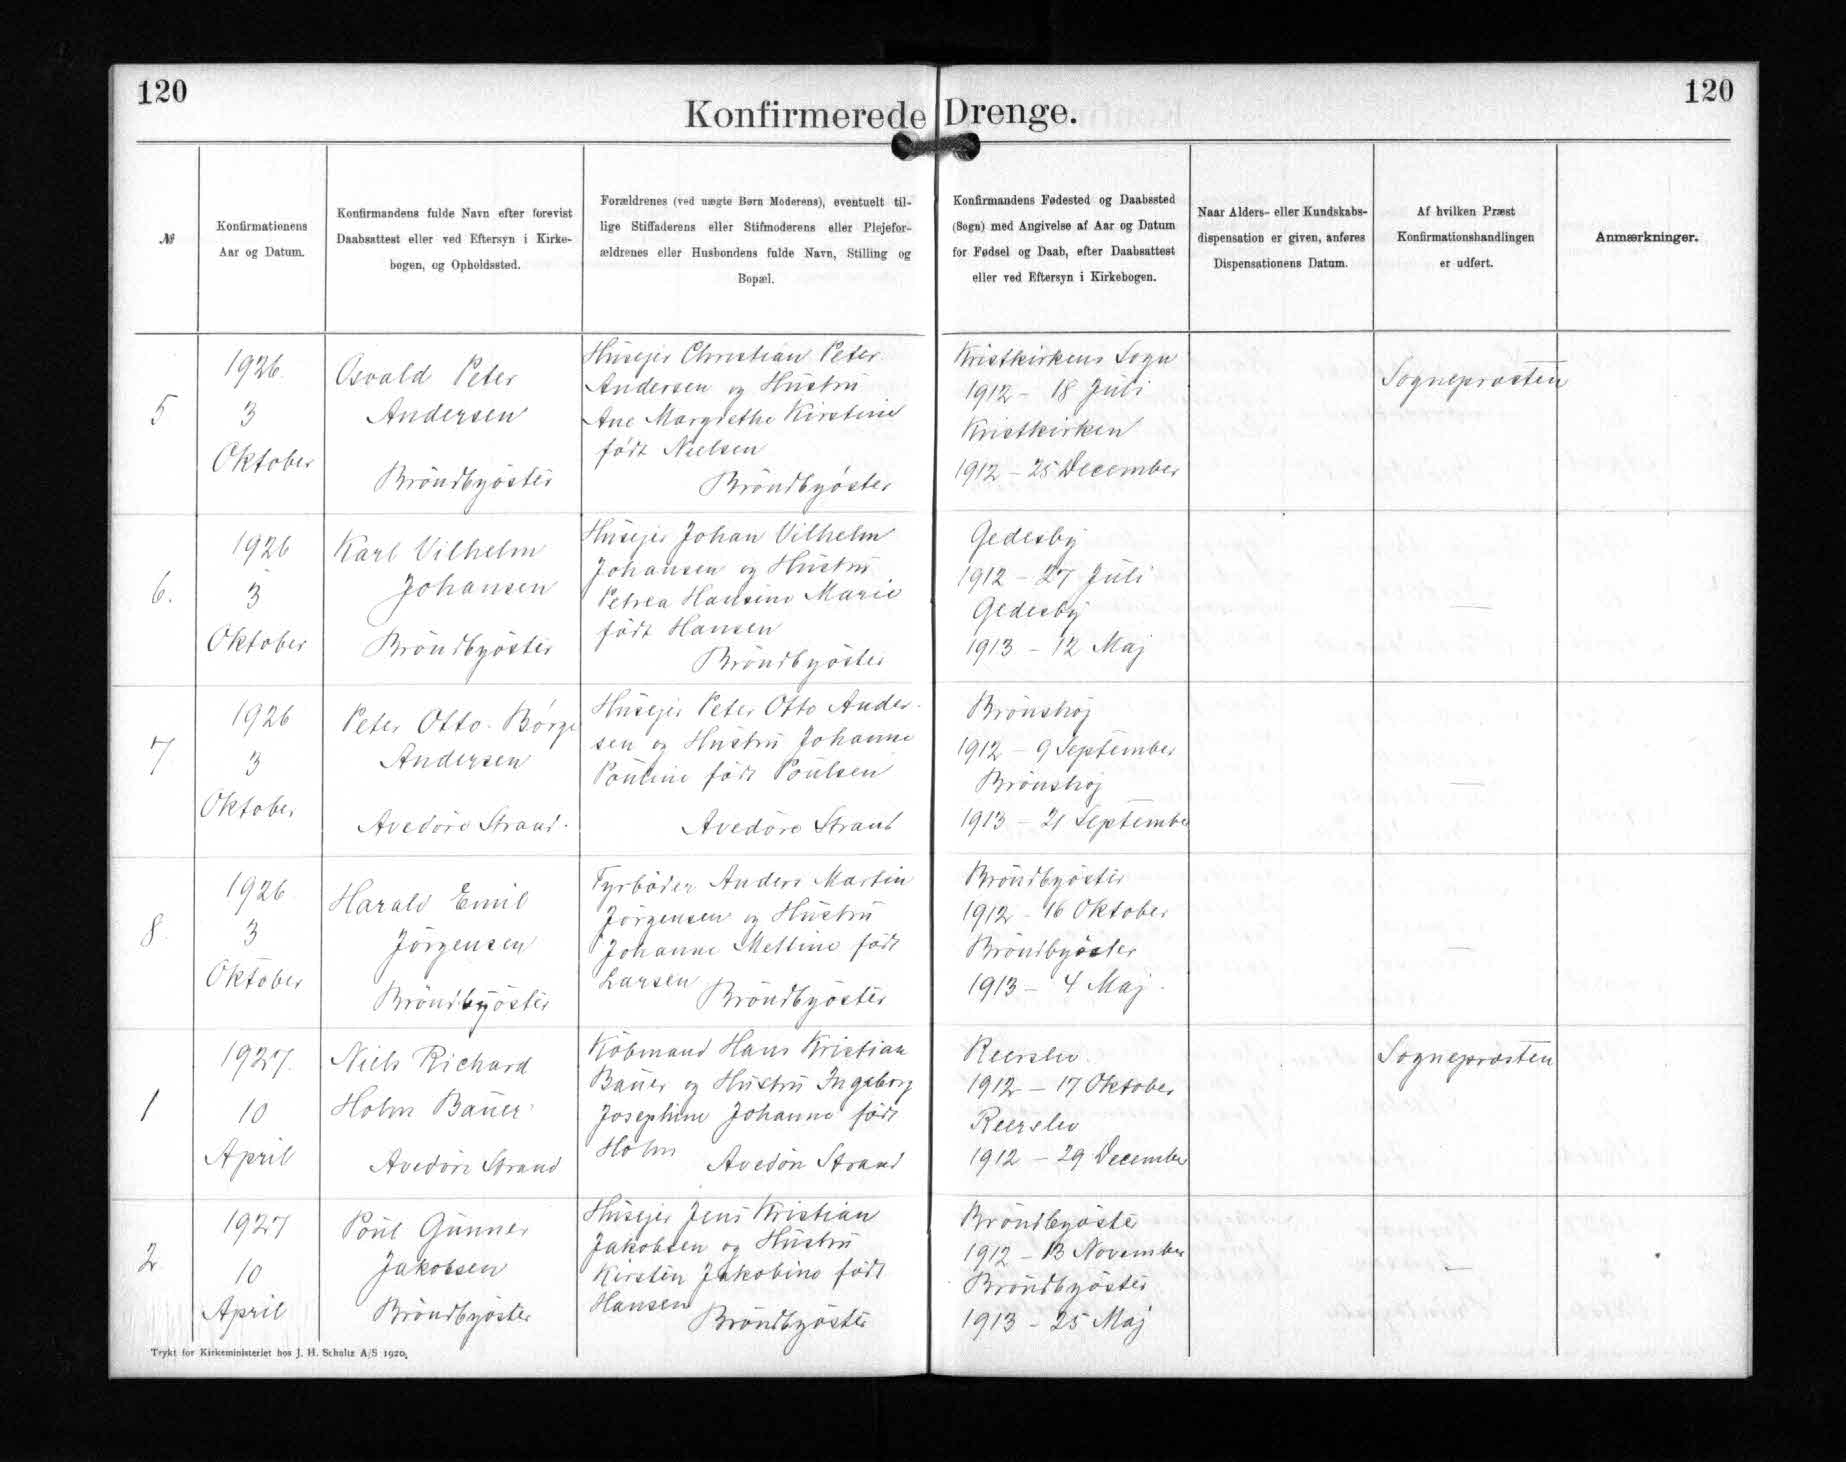 120
120
Konfirmerede Drenge.
№
Konfirmationens
Aar og Datum.
Konfirmandens fulde Navn efter forevist
Daabsattest eller ved Eftersyn i Kirke-
bogen, og Opholdssted.
Forældrenes (ved uægte Børn Moderens), eventuelt til-
lige Stiffaderens eller Stifmoderens eller Plejefor-
ældrenes eller Husbondens fulde Navn, Stilling og
Bopæl.
Konfirmandens Fødested og Daabssted
(Sogn) med Angivelse af Aar og Datum
for Fødsel og Daab, efter Daabsattest
eller ved Eftersyn i Kirkebogen.
Naar Alders- eller Kundskabs-
dispensation er given, anføres
Dispensationens Datum.
Af hvilken Præst
Konfirmationshandlingen
er udført.
Anmærkninger.
5
1926.
3
Oktober
Osvald Peter
Andersen
Bröndbyöster
Husejer Christian Peter
Andersen og Hustru
Ane Margrethe Kirstine
født Nielsen
Bröndbyøster
Kristkirkens Sogn
1912 - 18 Juli
Kristkirken
1912 - 25 December
Sognepræsten
6.
1926
3
Oktober
Karl Vilhelm
Johansen
Bröndbyöster
Husejer Johan Vilhelm
Johansen og Hustru
Petrea Hansine Marie
född Hansen
Bröndbyöster
Gedesby
1912 - 27 Juli
Gedesby
1913 - 12 Maj
—
7
1926
3
Oktober
Peter Otto Börge
Andersen
Avedöre Strand.
Husejer Peter Otto Ander-
sen og Hustru Johanne
Pouline födt Poulsen
Avedöre Strand
Brönshöj
1912 - 9 September
Brönshöj
1913 - 21 September
—
8.
1926.
3
Oktober
Harald Emil
Jörgensen
Bröndbyöster
Fyrböder Anders Martin
Jörgensen og Hustru
Johanne Mettine födt
Larsen
Bröndbyöster
Bröndbyöster
1912 - 16 Oktober
Bröndbyöster
1913 - 4 Maj.
—
1
1927.
10
April
Niels Richard
Holm Bauer
Avedöre Strand
Köbmand Hans Kristian
Bauer og Hustru Ingeborg
Josephine Johanne födt
Holm
Avedöre Strand
Reerslev
1912 - 17 Oktober
Reerslev
1912 - 29 December
Sognepræsten
2
1927
10
April
Poul Gunner
Jakobsen
Bröndbyöster
Husejer Jens Kristian
Jakobsen og Hustru
Kirsten Jakobine födt
Hansen
Bröndbyöster
Bröndbyöster
1912 - 13 November
Bröndbyöster
1913 - 25 Maj
—
Trykt for Kirkeministeriet hos J. H. Schultz A/S 1920.